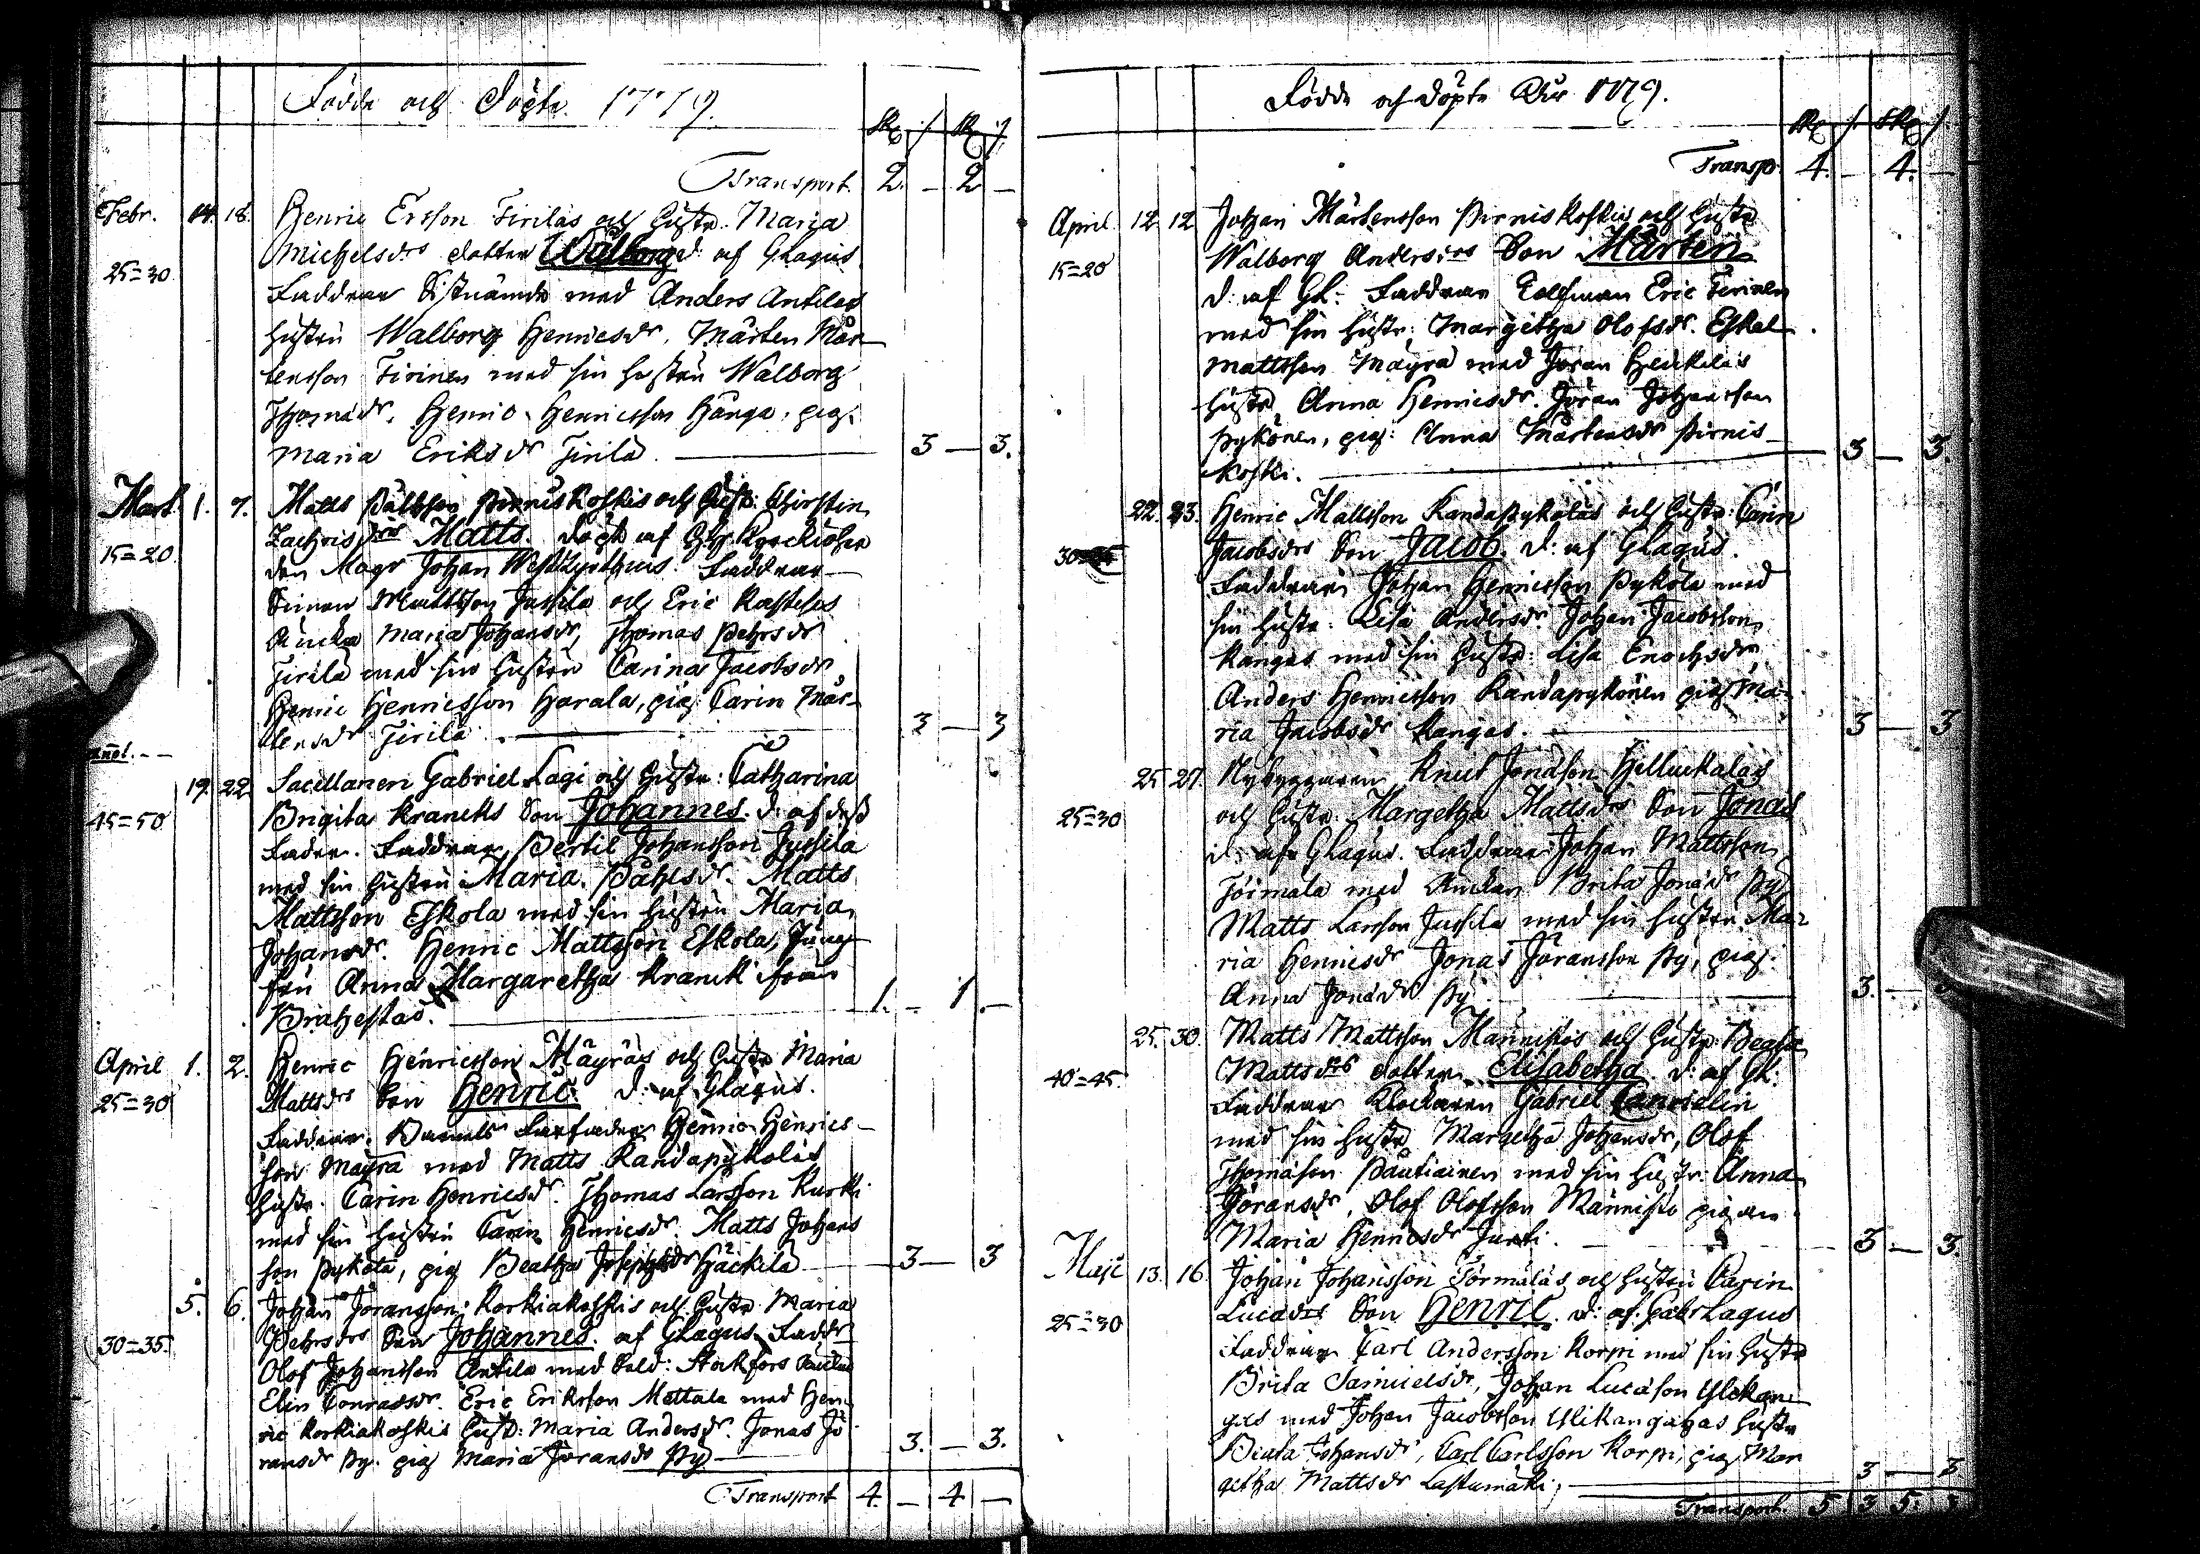 Födde och Döpte 1779.
Skr /. Skr /.
Transport. 2. – 2 –
Febr. 14. 18. Henric Ersson Tirilas och hustr. Maria
Michelsdrs dotter Walborg d: af GLagus
25=30
Faddrar med Anders Antilas
hustru Walborg Henricsdr. Mårten Mår-
tensson Tirinen med sin hustru Walborg
Thomædr. Henric Henricsson Hånga, pig.
Maria Eriksdr Tirila. 3 – 3.
Mart. 1. 7. Matts Påhlsson Pirniskoskis och hustr: Chirstin
Zachris drs Matts. döpt af Kyrckioher
15=20
den Magr Johan Westzynthius Faddrar
Simon Mattsson Jussila och Eric
Äncka Maria Johansdr, Thomas Pehrsdr
Tirila med sin hustru Carina Jacobsdr
Henric Henricsson Harala, pig. Carin Mår-
tensdr Tirilä. 3 – 3
19. 22 Sacellanen Gabriel Lagi och hustr: Catharina
Brigita Kraneks Son Johannes. d: af dess
45=50
Fader. Faddrar Bertil Johansson Jussila
med sin hustru Maria Påhlsdr. Matts
Mattsson Eskola med sin hustru Maria
Johansdr. Henric Mattsson Eskola, Jung-
frun Anna Margaretha Kranck från
Brahestad. 1. – 1 –
April 1. 2. Henric Henricsson Mäyräs och hustr Maria
Mattsdrs Son Henric. d: af GLagus.
25=30
Faddrar. Barnets Farfader Henric Henrics-
son Mäyrä med Matts Randapykolas
hustr. Carin Henricsdr. Thomas Larsson Kurki
med sin hustru Carin Henricsdr. Matts Johans
son Pyköla, pig Beatha Josephsdr Häckilä 3 – 3
5. 6. Johan Jöransson Korkiakoskis och hustr Maria
Pehrsdrs Son Johannes. af GLagus Faddr
30=35.
Olof Johansson Antila med Sold: Stockfors
Elin Conradsdr. Eric Eriksson Mattala med Hen-
ric Korkiakoskis hustr: Maria Andersdr. Jonas Jö
ransdr Py. pig Maria Jöransdr Py 3. – 3.
Transport 4. – 4 –
Födde och Döpte Åhr 1779.
Skr /. Skr /.
Transp. 4. – 4. –
April 12 12 Johan Mårtensson Pirniskoskis och hustr
Walborg Andersdrs Son Mårten
15=20
d: af GL: Faddrar Tolfman Eric Tirinen
med sin hustr: Margetha Olofsdr. Eskel
Mattsson Mäyrä med Jöran Heickiläs
hustr Anna Henricsdr. Jöran Johansson
Pykönen, pig: Anna Mårtensdr Pirnis-
koski. 3 – 3.
22. 23. Henric Mattsson Randapykölas och hustr: Carin
Jacobsdrs Son Jacob. d: af GLagus.
30=35
Faddrar Johan Henricsson Pyköla med
sin hustr. Lisa Andersdr. Johan Jacobsson
Kangas med sin hustr: Lisa Enochsdr
Anders Henricsson Randapykönen pig Ma-
ria Jacobsdr Kangas. 3 – 3
25. 27. Nybyggaren Knut Jonasson Hilluckalas
och hustr. Margetha Mattsdrs Son Jonas
25=30
d: af GLagus. Faddrar Johan Mattsson
Törmälä med Änckan Brita Jonædr Py
Matts Larsson Jussila med sin hustru Ma-
ria Henricsdr Jonas Jöransson Py, pig.
Anna Jonædr Py 3. –
25. 30. Matts Mattsson Männistös och hustr: Beata
Mattsdrs dotter Elisabetha d: af GL:
40=45.
Faddrar Klockaren Gabriel
med sin hustr Margetha Johansdr, Olof
Thomæson Pautiainen med sin hustr. Anna
Göransdr, Olof Olofsson Männistö pigan
Maria Henricsdr Junti. 3 – 3.
Maji 13. 16. Johan Johansson Törmäläs och hustru Carin
Lucædrs Son Henric. d: af Gabr Lagus
25=30
Faddrar Carl Andersson Korpi med sin hustr
Brita Samuelsdr, Johan Lucæson Ylikan-
gas med Johan Jacobsson Ulikangagas hustr
Beata Johansdr, Carl Carlsson Korpi, pig. Mar
getha Mattsdr Lastumäki; 3 – 3
Transport. 5 3 5. 3